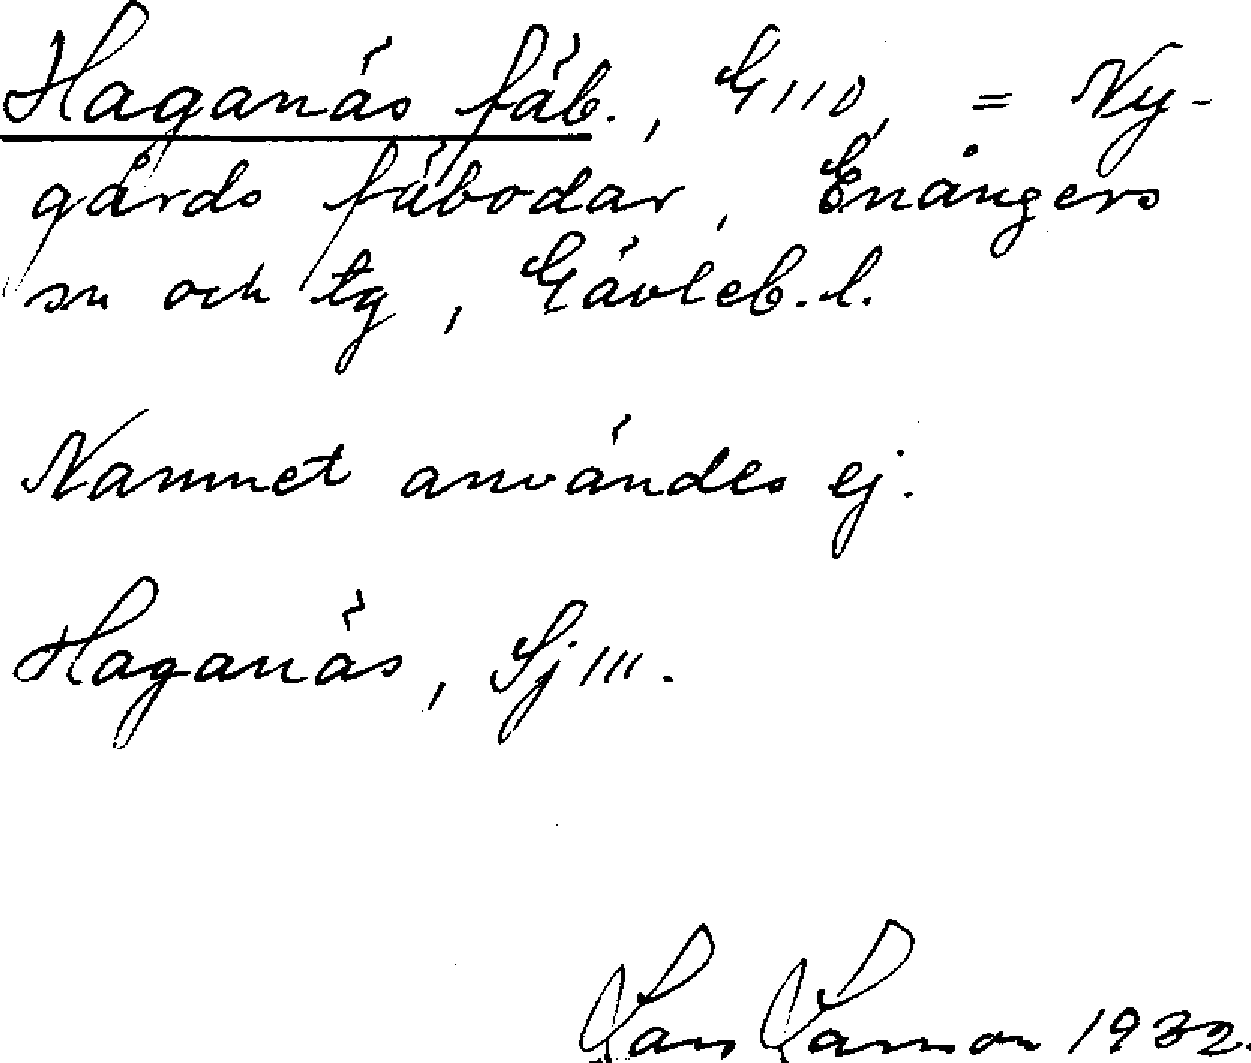 Haganäs fäb., G110, = Ny-
gårds fäbodar, Enångers
sn och tg, Gävleb. l.
Namnet användes ej.
Haganäs, Sj 111.
Lars Larsson 1932.